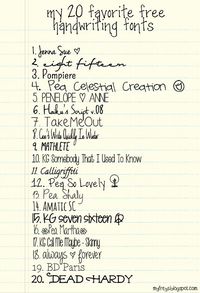 my 20 favorite free
handwriting fonts
1. Jenna Sue ♡
2. eight fifteen
3. Pompiere
4. Pea Celestial Creation
5. PENELOPE ♡ ANNE
6. Script v.08
7. Take Me Out
8. Can't Write
9. MATHLETE
10. KG Somebody That I Used To Know
11. Calligraffiti
12. Pea So Lovely
13. Pea Shaly
14. AMATIC SC
15. KG seven sixteen
16. Pea Martha
17. KG Call Me Maybe - Skinny
18. always ♡ forever
19. BD Paris
20. DEAD HARDY